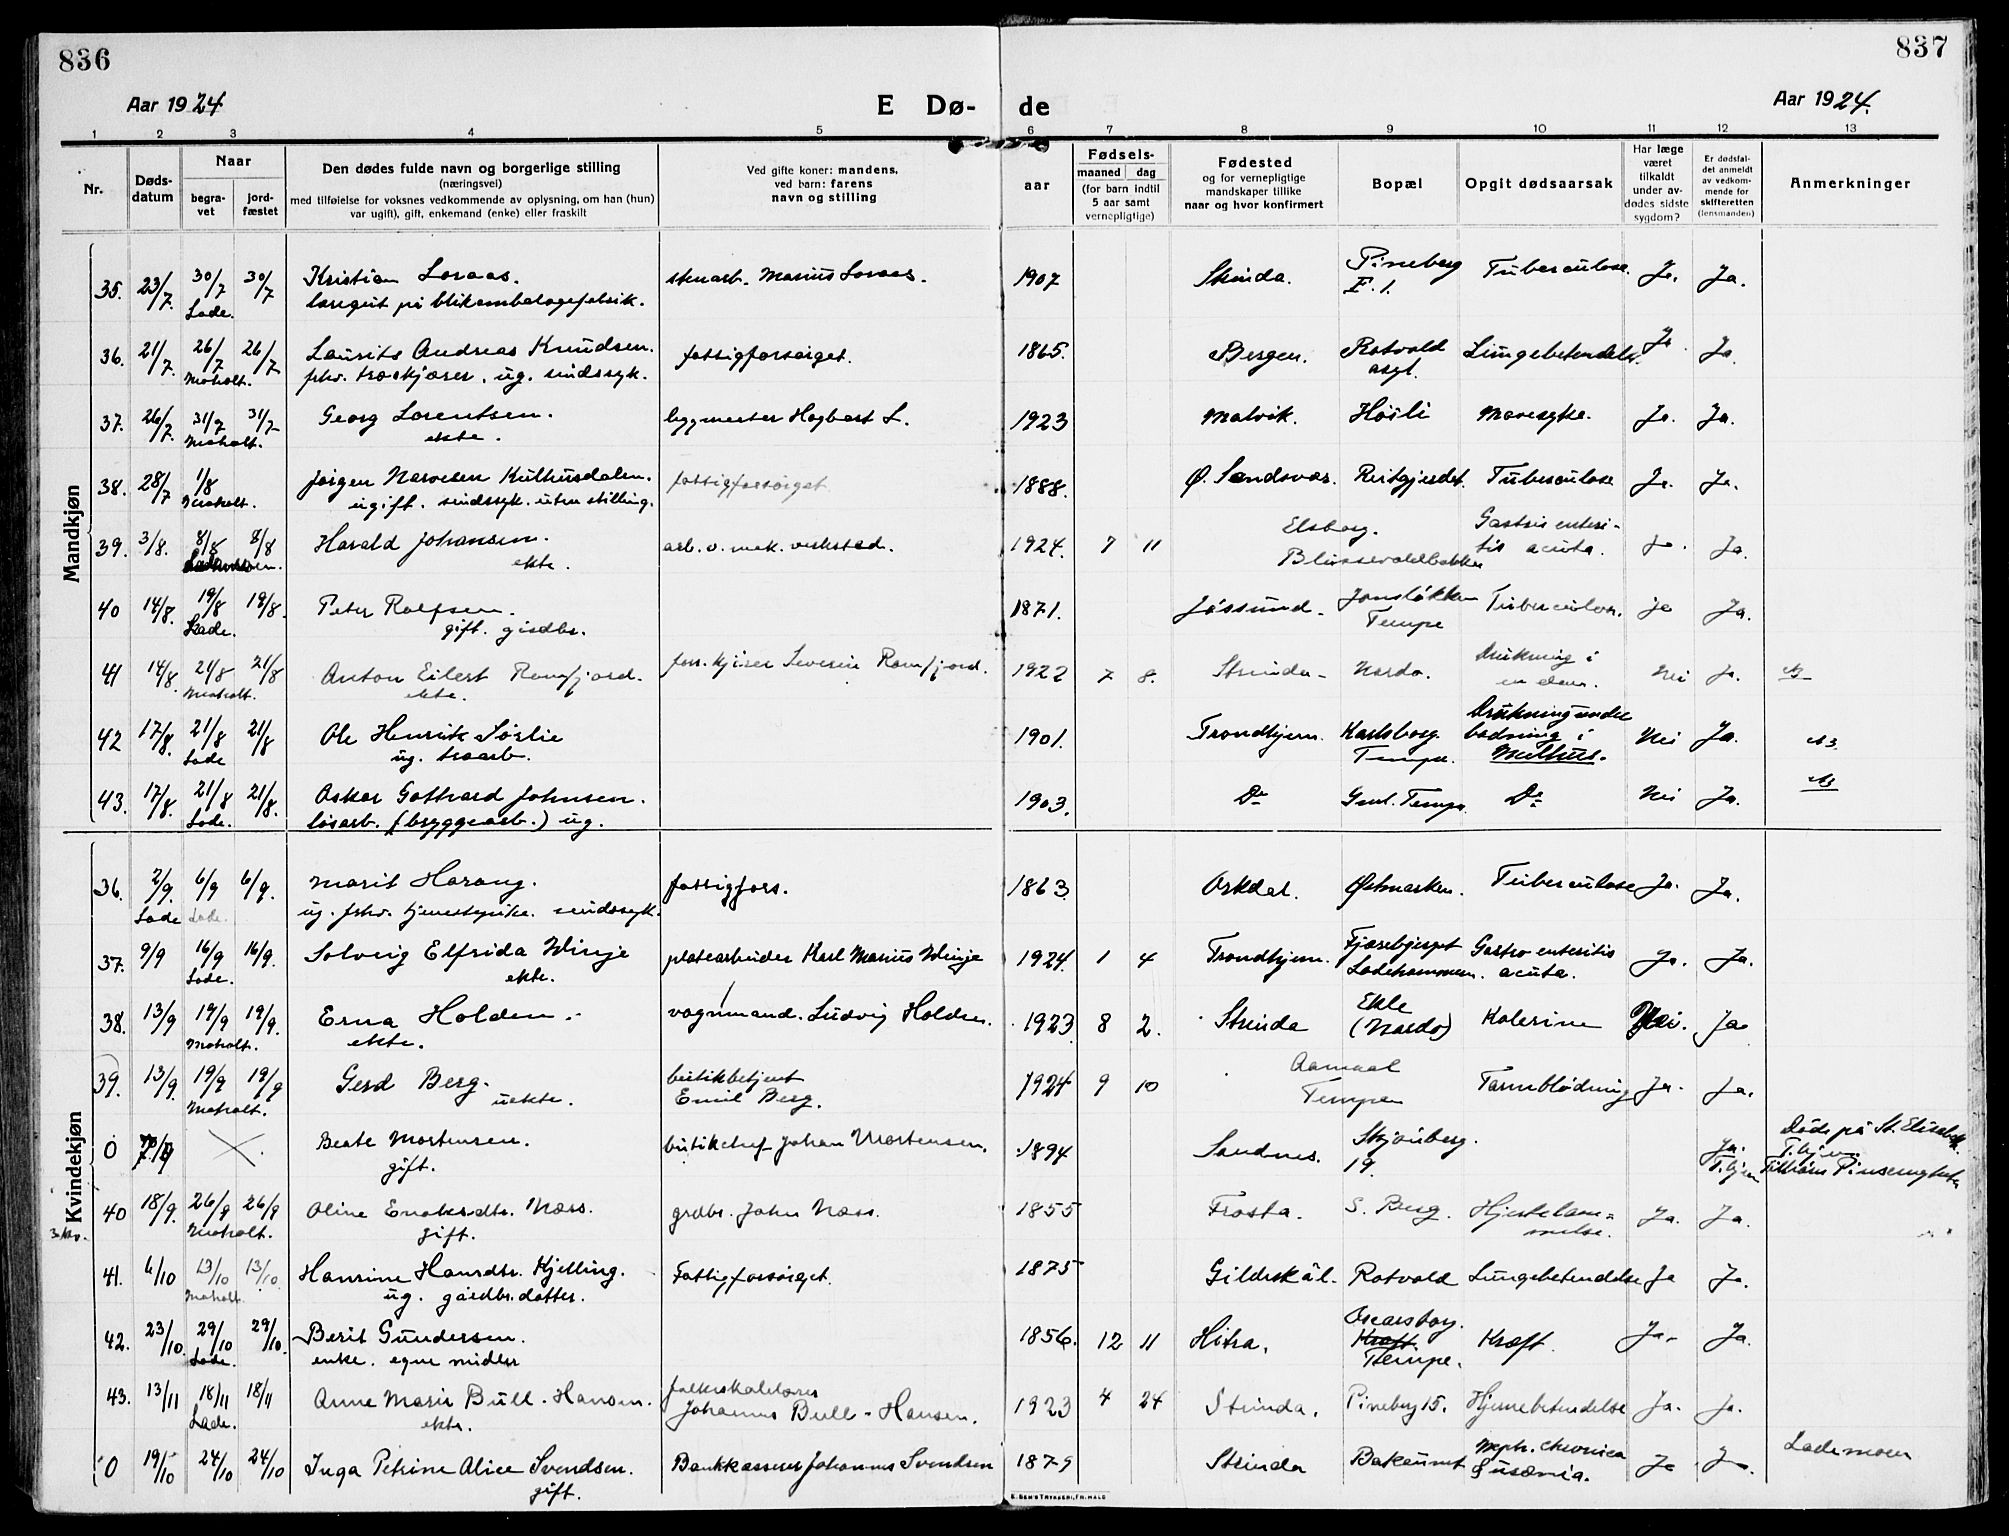 836
837
Aar 1924
E Dø-
de
Aar 1924.
1 2 3 4 5 6 7 8 9 10 11 12 13
Nr.
Døds-
datum
Naar
begra-
vet
jord-
fæstet
Den dødes fulde navn og borgerlige stilling
(næringsvei)
med tilføielse for voksnes vedkommende av oplysning, om han (hun)
var ugift), gift, enkemand (enke) eller fraskilt
Ved gifte koner: mandens,
ved barn: farens
navn og stilling
aar
Fødsels-
maaned dag
(for barn indtil
5 aar samt
vernepligtige)
Fødested
og for vernepligtige
mandskaper tillike
naar og hvor konfirmert
Bopæl
Opgit dødsaarsak
Har læge
været
tilkaldt
under av-
dødes sidste
sygdom?
Er dødsfal-
det anmeldt
av vedkom-
mende for
skifteretten
(lensmanden)
Anmerkninger
Mandkjøn
35. 23/7 30/7 30/7 Kristian Loraas. stenarb. Marius Loraas. 1907 Strinda. Pineberg Tuberculose. Ja. Ja.
Lade. læregut på blikembalagefabrik. E. 1.
36. 21/7 26/7 26/7 Laurits Andreas Knudsen. fattigforsørget. 1865. Bergen. Rotvold Lungebetendelse Ja Ja.
Moholt. fhv. træskjærer. ug. sindssyk. asyl.
37. 26/7 31/7 31/7 Georg Lorentsen. bygmester Hagbart L. 1923 Malvik. Høili Mavesyke. Ja. Ja.
Moholt. ekte.
38. 28/7 1/8 Jørgen Narvesen Kulhusdalen. fattigforsørget 1888. Ø. Sandsvær. Reitgjerdet. Tuberculose Ja. Ja.
Moholt. ugift. sindssyk. uten stilling.
39. 3/8. 8/8 8/8 Harald Johansen. arb. v. mek. verksted. 1924. 7 11 Elsborg. Gastris enteri-
ekte. Blussevoldbakken tis acuta. Ja. Ja.
40 14/8. 19/8 19/8. Peter Rolfsen. 1871. Jøssund. Jonsløkken Tuberculose. Ja Ja.
Lade. gift. gårdbr. Tempe
41 14/8. 21/8 21/8 Anton Eilert Ramfjord. forr. kjører Severin Ramfjord. 1922 7 8. Strinda. Nardo. Drukning i Nei Ja.
Moholt. ekte. en elv.
42 17/8. 21/8 21/8 Ole Henrik Sørlie 1901. Trondhjem. Karlsborg. Drukning under
Lade ug. træarb. Tempe. badning i Nei Ja.
Melhus.
43. 17/8. 21/8 21/8. Oskar Gothard Johnsen. 1903. Do Gml. Tempe Do Nei Ja.
Lade. løsarb. (bryggearb.) ug.
Kvindekjøn
36. 2/9. 6/9 6/9. Marit Harang. fattigfors. 1863 Orkdal. Østmarken. Tuberculose Ja. Ja.
Lade Lade. ug. fhv. tjenestepike. sindssyk.
37. 9/9 16/9 16/9. Solveig Elfrida Winje platearbeider Karl Marius Winje 1924. 1 4 Trondhjem. Fjæreby Gastro enteritis Ja. Ja.
Lade. ekte. Ladehammern. acuta.
38. 13/9 19/9 19/9. Erna Holden. vognmand. Ludvig Holden. 1923 8 2. Strinda Ekle Kolerine Nei. Ja
Moholt. ekte. (Nardo)
39. 13/9. 19/9 19/9 Gerd Berg. butikbetjent 1924 9 10 Tarmblødning Ja. Ja.
Moholt. uekte. Emil Berg. Tempe
0 Beate Mortensen. butikchef Johan Mortensen. 1894 Sandnes. Skjønberg. Ja. Døde på St. Elisabeth
gift. 19. T.hjem T.hjem.
40 18/9. 26/9 26/9 Oline Enoksdtr. Næss. grdbr. John Næss. 1855 Frosta. S. Berg. Hjertelam- Ja. Ja.
Moholt. gift. melse.
41. 6/10 13/10 13/10. Hansine Hansdtr. Kjelling. Fattigforsørget. 1875 Gildeskål. Rotvold Lungebetendelse Ja Ja.
Moholt. ug. gårdbr.datter.
42. 23/10. 29/10 29/10. Berit Gundersen. 1856. 12 11 Hitra. Oscarsborg. Kræft. Ja. Ja.
Lade. enke. egne midler Kræft. Tempe.
43. 13/11 18/11 18/11 Anne Marie Bull-Hansen. folkeskolelærer 1923 4 24 Strinda. Pineberg 15. Hjernebetendelse Ja. Ja.
Lade. ekte. Johannes Bull-Hansen.
0 19/10 24/10 24/10 Inga Petrine Alice Svendsen. Bankkasserer Johannes Svendsen 1879 Strinda Bakaunet Neph. chronica Ja Ja. Lademoen
gift. & uræmia.
E. SEM'S TRYKKERI, FR.HALD